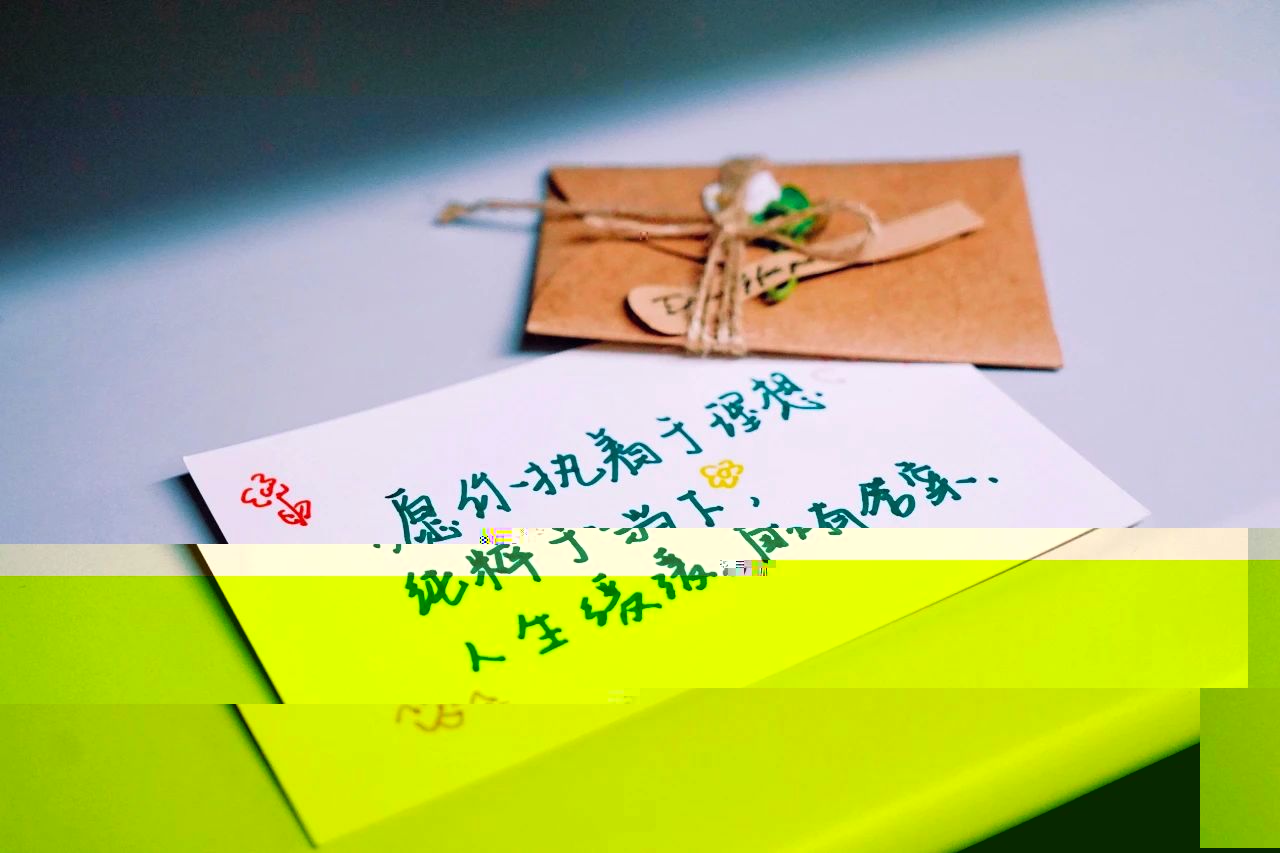 愿你执着于理想
纯粹于当下，
人生缓缓 自有答案..